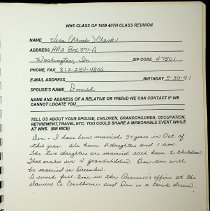 WHS CLASS OF 1959 40TH CLASS REUNION
NAME Vera (Arnold) Clark
ADDRESS RR2 Box 371-A
Washington, In ZIP CODE 47501
PHONE/FAX 812-254-4806
E-MAIL ADDRESS BIRTHDAY 5-30-41
SPOUSE'S NAME Donald
NAME AND ADDRESS OF A RELATIVE OR FRIEND WE CAN CONTACT IF WE
CANNOT LOCATE YOU
TELL US ABOUT YOUR SPOUSE, CHILDREN, GRANDCHILDREN, OCCUPATION,
RETIREMENT, TRAVEL, ETC. YOU COULD SHARE A MEMORABLE EVENT WHILE
AT WHS. (BE NICE)
Don & I have been married 39 years in Oct. of
this year. We have 2 daughters and 1 son.
The two daughters are married and have 2 children.
That makes us 4 grandchildren. Our son will
be married in December.
I work part time in the office at the
and Don is a truck driver.